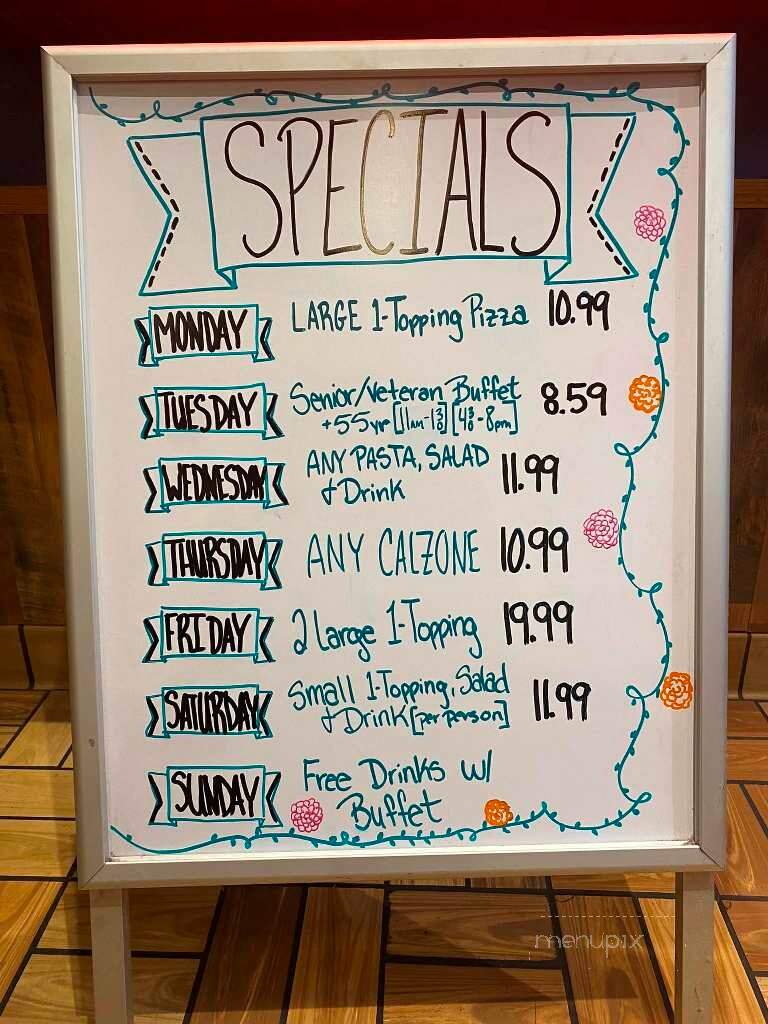 SPECIALS
MONDAY LARGE 1-Topping Pizza 10.99
TUESDAY Senior/Veteran Buffet 8.59
+55yr [11am-1:30] [4:30-8pm]
WEDNESDAY ANY PASTA, SALAD 11.99
+ Drink
THURSDAY ANY CALZONE 10.99
FRIDAY 2 Large 1-Topping 19.99
SATURDAY Small 1-Topping, Salad 11.99
+ Drink [per person]
SUNDAY Free Drinks w/
Buffet
menupix